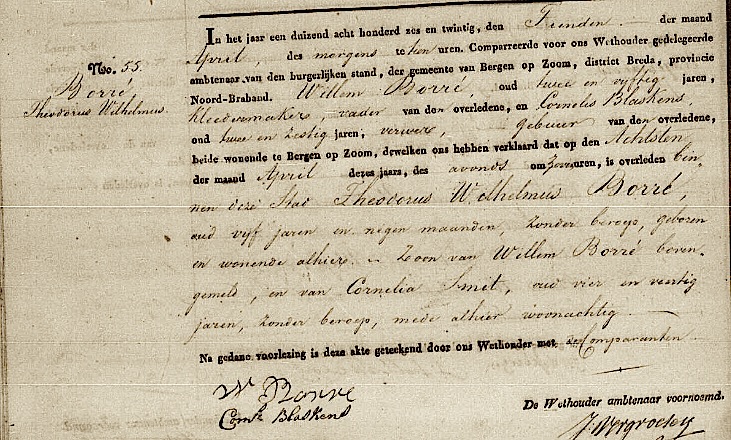 No. 55.
Borré,
Theodorus Wilhelmus.
In het jaar een duizend acht honderd zes en twintig, den Tienden der maand
April, des morgens te tien uren. Compareerde voor ons Wethouder gedelegeerde
ambtenaar van den burgerlijken stand, der gemeente van Bergen op Zoom, district Breda, provincie
Noord-Braband. Willem Borré, oud twee en vijftig jaren,
kleedermaker, vader van den overledene, en Cornelis Blaskens,
oud twee en zestig jaren, verwer, gebuur van den overledene,
beide wonende te Bergen op Zoom, dewelken ons hebben verklaard dat op den Achtsten
der maand April dezes jaars, des avonds om zeven uren, is overleden bin-
nen deze Stad Theodorus Wilhelmus Borré,
oud vijf jaren en negen maanden, zonder beroep, geboren
en wonende alhier. – Zoon van Willem Borré boven-
gemeld, en van Cornelia Smit, oud vier en veertig
jaren, zonder beroep, mede alhier woonachtig.
Na gedane voorlezing is deze akte geteekend door ons Wethouder met de Comparanten.
W Borré
Corns. Blaskens
De Wethouder ambtenaar voornoemd,